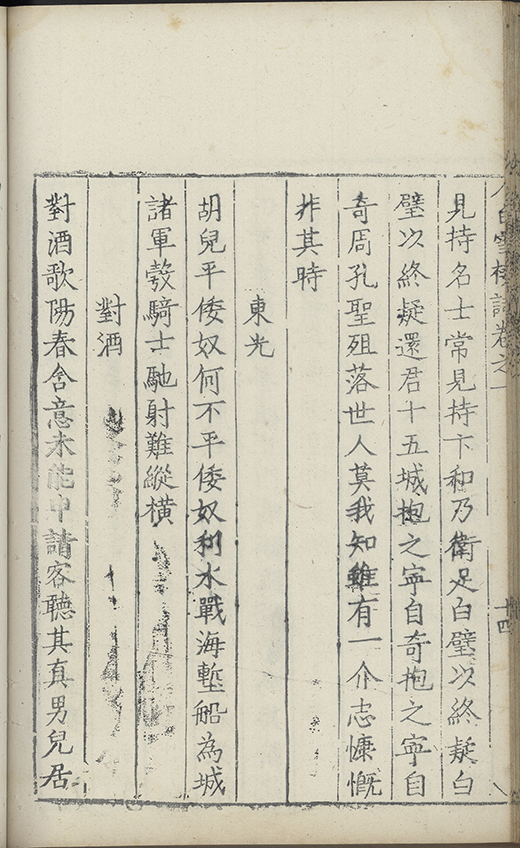 白雪樓詩卷之一
十四
見持名士常見持卞和乃衛足白璧以終疑白
璧以終疑還君十五城抱之寧自奇抱之寧自
奇周孔聖殂落世人莫我知雖有一介志慷慨
非其時
東光
胡兒平倭奴何不平倭奴利水戰海塹船為城
諸軍彀騎士馳射難縱橫
對酒
對酒歌陽春含意未能申請客聽其真男兒居